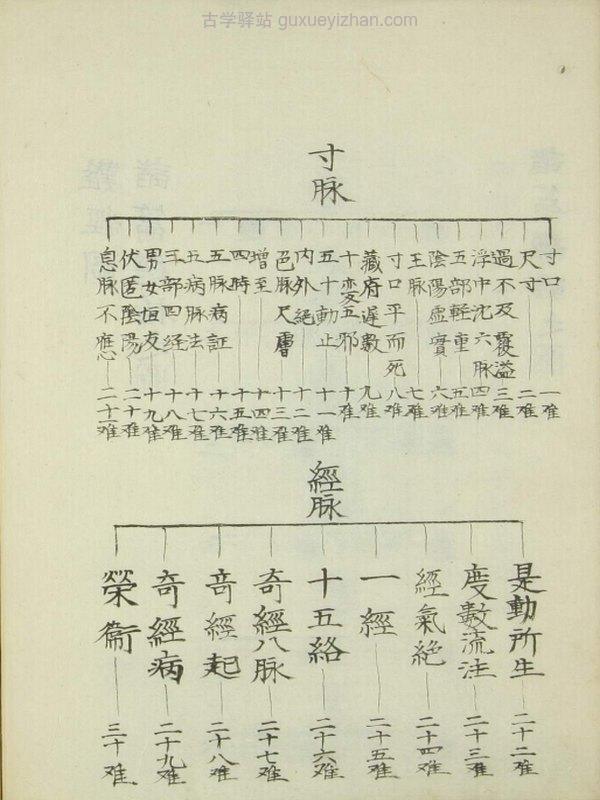 古学驿站 guxueyizhan.com
寸脉
寸口 一难
尺寸 二难
過不及覆溢 三难
浮中沈六脉 四难
五部輕重 五难
陰陽虛實 六难
王脉 七难
寸口平而死 八难
藏府遲數 九难
十変五邪 十难
五十動止 十一难
内外絕 十二难
色脉尺膚 十三难
增至 十四难
四時 十五难
五脉病証 十六难
五病脉法 十七难
三部四经 十八难
男女恒反 十九难
伏匿陰陽 二十难
息脉不應 二十难
經脉
是動所生 二十二难
度數流注 二十三难
經氣絕 二十四难
一經 二十五难
十五絡 二十六难
奇經八脉 二十七难
奇經起 二十八难
奇經病 二十九难
榮衞 三十难